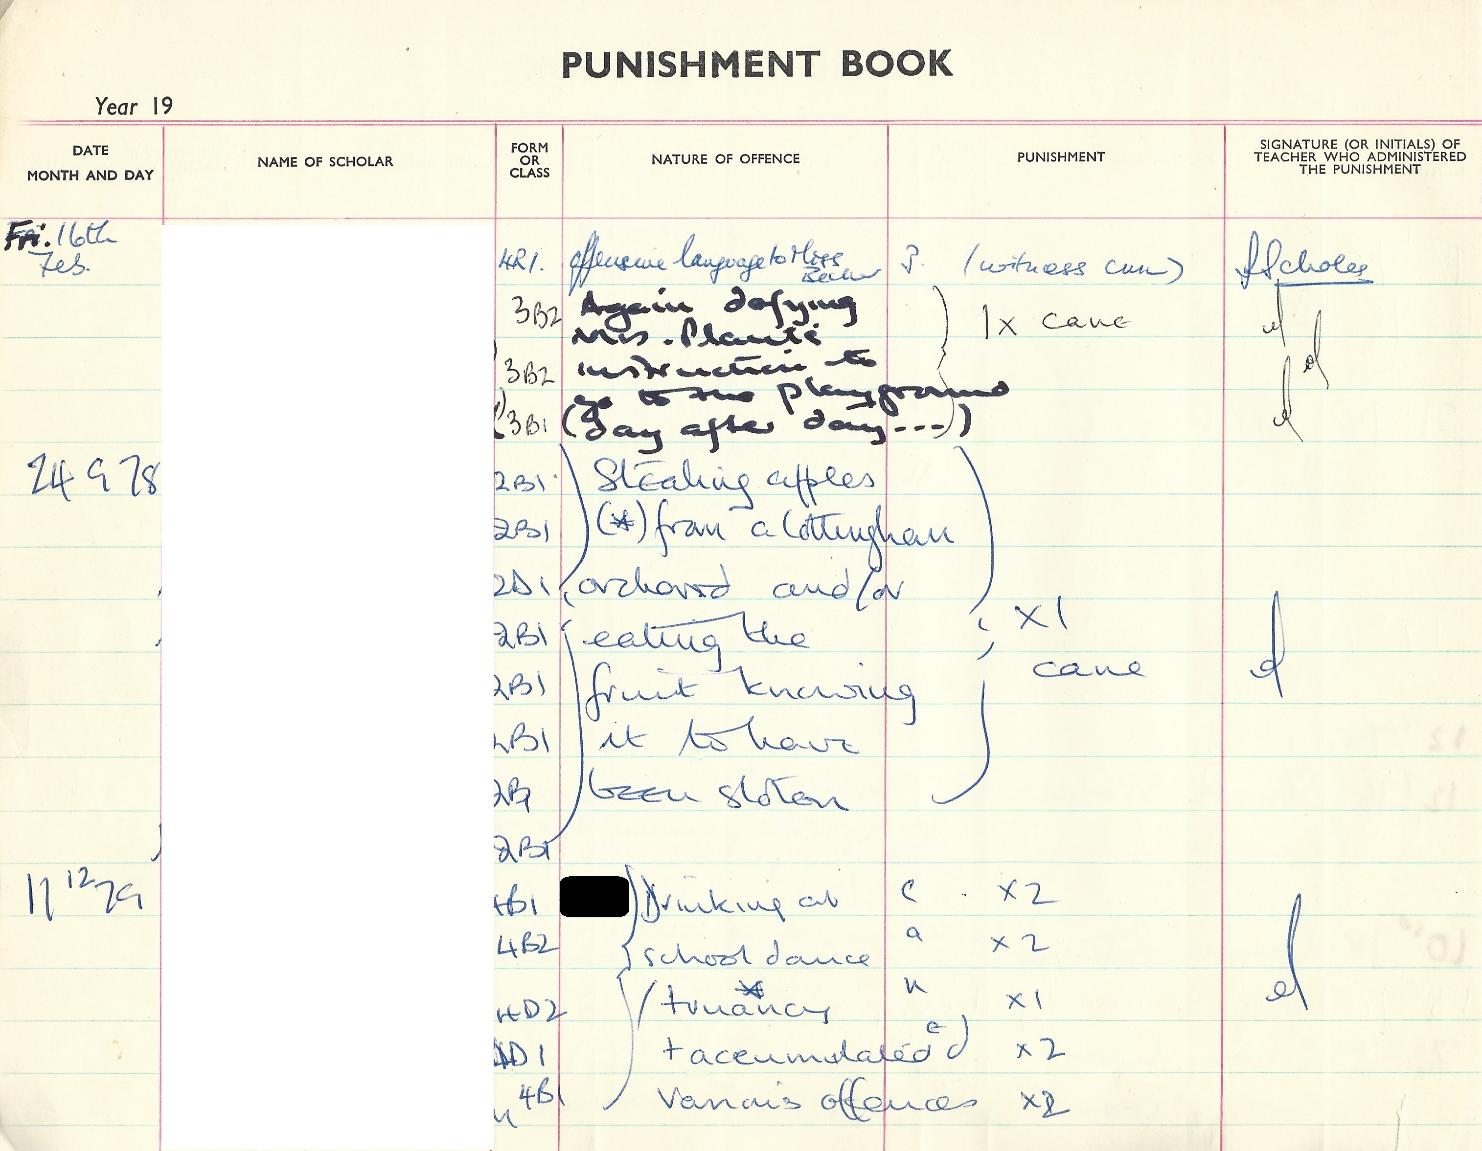 PUNISHMENT BOOK
Year 19
DATE
MONTH AND DAY
NAME OF SCHOLAR
FORM
OR
CLASS
NATURE OF OFFENCE
PUNISHMENT
SIGNATURE (OR INITIALS) OF
TEACHER WHO ADMINISTERED
THE PUNISHMENT
Fri. 16th
Feb.
4R1. offensive language to Miss
(witness cum) Scholes
3B2 Again defying
Mrs. Planté 1x cane
3B2 instruction to
go to the playground
3B1 (day after day---)
24 9 78 2B1 Stealing apples
2B1 (*) from a Cottingham
2D1 orchard and/or
2B1 eating the x1
cane
2B1 fruit knowing
2B1 it to have
2B1 been stolen
2B1
11 12 79 4B1 Drinking at c x2
4B2 school dance a x2
4D2 truancy n x1
4D1 + accumulated e x2
4B1 various offences x2